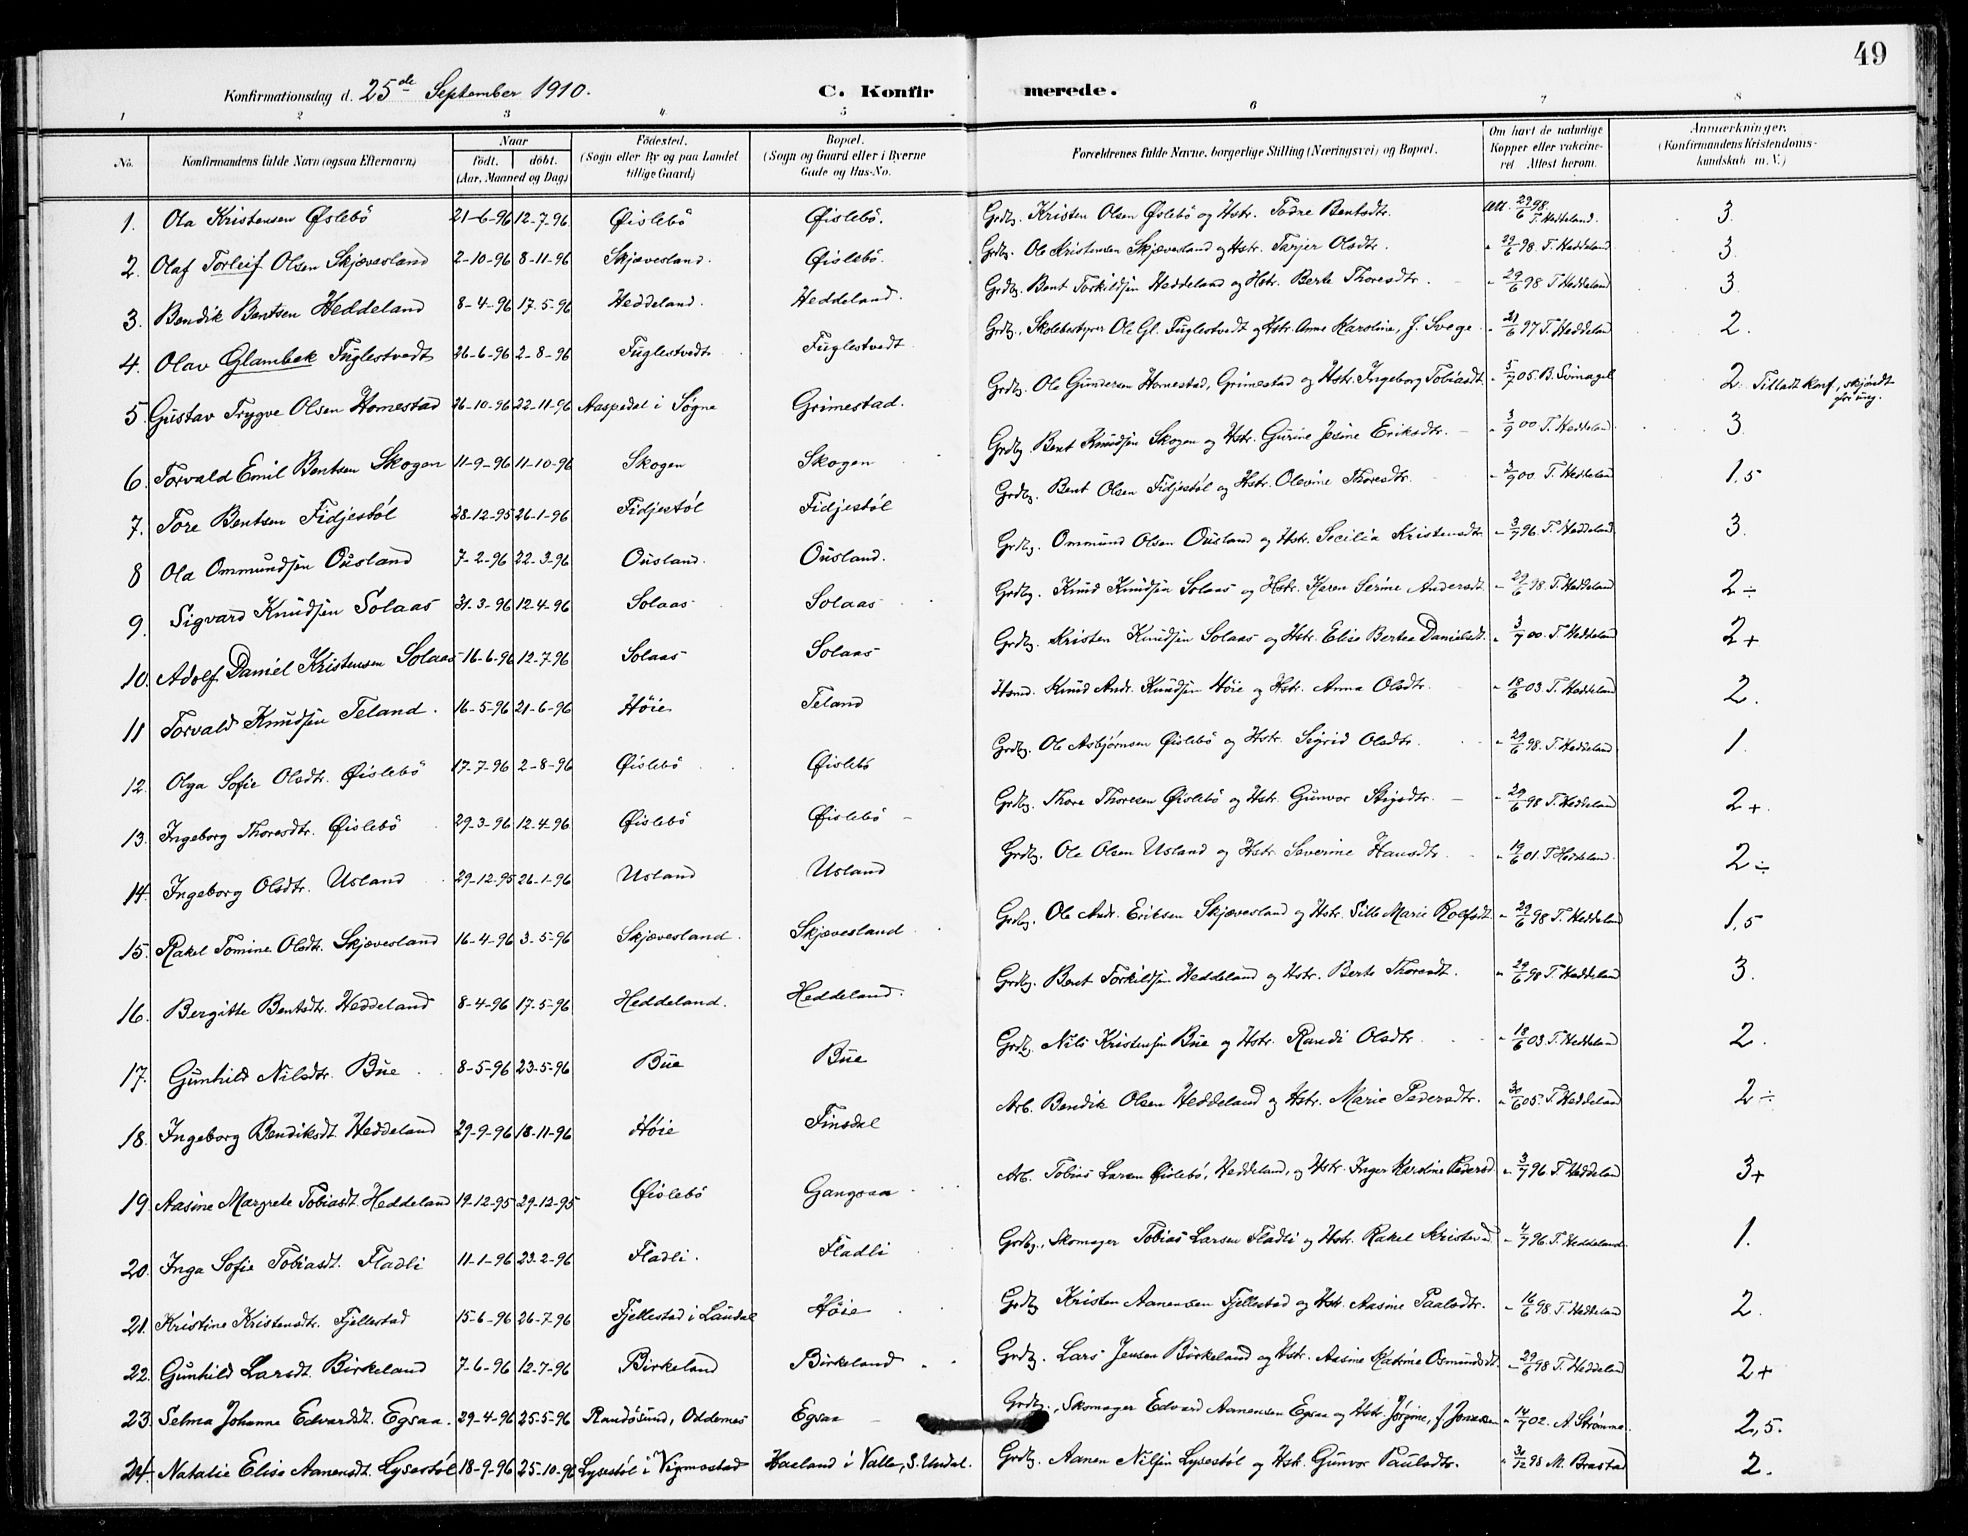 49
Konfirmationsdag d. 25de September 1910. C. Konfirmerede.
1 2 3 4 5 6 7 8
No. Konfirmandens fulde Navn (ogsaa Efternavn) Naar født. døbt. (Aar, Maaned og Dag) Fødested. (Sogn eller By og paa Landet tillige Gaard) Bopæl. (Sogn og Gaard eller i Byerne Gade og Hus-No. Forældrenes fulde Navne, borgerlige Stilling (Næringsvei) og Bopæl. Om havt de naturlige Kopper eller vakcineret Attest herom. Anmærkninger. (Konfirmandens Kristendomskundskab m. V.)
1. Ola Kristensen Øslebö 21-6-96 12-7-96 Øislebö Øislebö. Grdbg. Kristen Olsen Øslebö og Hstr. Todne Bentsdtr. Att. 29/6 98. T. Heddeland. 3.
2. Olaf Torleif Olsen Skjævesland 2-10-96 8-11-96 Skjævesland. Øislebö. Grdbg. Ole Kristensen Skjævesland og Hstr. Tarjer Olsdtr. " 29/6 98 T. Heddeland 3.
3. Bendik Bentsen Heddeland 8-4-96 17-5-96 Heddeland. Heddeland. Grdbg. Bent Torkildsen Heddeland og Hstr. Berte Thoresdtr. " 29/6 98 T Heddeland 3.
4. Olav Glambek Fuglestvedt 26-6-96 2-8-96 Fuglestvedt Fuglestvedt Grdbg., Skolebestyrer Ole Gl. Fuglestvedt og Hstr. Anne Karoline, f. Svege " 21/6 97 T. Heddeland 2.
5. Gustav Trygve Olsen Homestad 26-10-96 22-11-96 Aaspedal i Søgne Grimestad. Grdbg. Ole Gundersen Homestad, Grimestad og Hstr. Ingeborg Tobiasdt. " 5/7 05. B. Svinagel 2. Tilladt konf, skjøndt for ung.
6. Torvald Emil Bentsen Skogen 11-9-96 11-10-96 Skogen Skogen Grdbg. Bent Knudsen Skogen og Hstr. Gurine Jesine Eriksdtr. " 3/9 00 T. Heddeland. 3.
7. Tore Bentsen Fidjestøl 28-12-95 26-1-96 Fidjestøl Fidjestøl Grdbg. Bent Olsen Fidjestøl og Hstr. Olevine Thoresdtr. " 3/9 00 T. Heddeland 1.5
8 Ola Ommundsen Ousland 7-2-96 22-3-96 Ousland. Ousland. Grdbg. Ommund Olsen Ousland og Hstr. Secilia Kristensdtr " 3/7 96 T. Heddeland. 3.
9. Sigvard Knudsen Solaas 31-3-96 12-4-96 Solaas Solaas Grdbg. Knud Knudsen Solaas og Hstr. Karen Serine Andersdt. " 29/6 98 T. Heddeland 2÷
10. Adolf Daniel Kristensen Solaas 16-6-96 12-7-96 Solaas Solaas Grdbg. Kristen Knudsen Solaas og Hstr. Elise Bertea Danielsdt. " 3/7 00. T. Heddeland 2+
11 Torvald Knudsen Teland. 16-5-96 21-6-96 Høie Teland Hsmd. Knud Andr. Knudsen Høie og Hstr. Anna Olsdtr. " 18/6 03. T. Heddeland 2.
12. Olga Sofie Olsdtr. Øislebö 17-7-96 2-8-96 Øislebö Øislebö Grdbg. Ole Asbjørnsen Øislebö og Hstr. Sigrid Olsdtr. " 29/6 98. T. Heddeland 1.
13. Ingeborg Thoresdtr. Øislebö 29-3-96 12-4-96 Øislebö Øislebö – Grdbg. Thore Thoresen Øislebö og Hstr. Gunvor Stigsdtr. – " 29/6 98 T. Heddeland 2+.
14. Ingeborg Olsdtr. Usland 29-12-95 26-1-96 Usland Usland Grdbg. Ole Olsen Usland og Hstr Severine Hansdtr. " 19/6 01. T Heddeland. 2÷
15. Rakel Tomine Olsdtr. Skjævesland 16-4-96 3-5-96 Skjævesland. Skjævesland Grdbg. Ole Andr. Eriksen Skjævesland og Hstr. Sille Marie Rolfsdt. " 29/6 98 T. Heddeland 1,5
16. Bergitte Bentsdtr. Heddeland 8-4-96 17-5-96 Heddeland. Heddeland. Grdbg. Bent Torkildsen Heddeland og Hstr. Berte Thoresdt. " 29/6 98 T. Heddeland 3.
17. Gunhild Nilsdtr. Bue 8-5-96 23-5-96 Bue Bue Grdbg. Nils Kristensen Bue og Hstr. Randi Olsdtr " 18/6 03. T. Heddeland 2.
18. Ingeborg Bendiksdt. Heddeland 29-9-96 18-11-96 Høie Finsdal Arb. Bendik Olsen Heddeland og Hstr. Marie Pedersdtr. " 30/6 05. T. Heddeland 2÷
19. Aasine Margrete Tobiasdt. Heddeland 19-12-95 29-12-95 Øislebö Gangsaa Arb. Tobias Larsen Øislebö, Heddeland, og Hstr. Inger Karoline Pedersd. " 3/7 96 T. Heddeland 3+
20. Inga Sofie Tobiasdt. Fladli 11-1-96 23-2-96 Fladli. Fladli Grdbg., Skomager Tobias Larsen Fladli og Hstr. Rakel Kristensd " 4/7 96 T. Heddeland. 1.
21. Kristine Kristensdtr. Fjellestad 15-6-96 26-7-96 Fjellestad i Laudal Høie Grdbg Kristen Aanensen Fjellestad og Hstr. Aasine Paalsdtr. " 16/6 98. T. Heddeland 2.
22. Gunhild Larsdt. Birkeland 7-6-96 12-7-96 Birkeland Birkeland Grdbg. Lars Jensen Birkeland og Hstr. Aasine Katrine Osmundsdt. " 29/6 98 T. Heddeland 2+
23. Selma Johanne Edvardsdt. Egsaa. 29-4-96 25-5-96 Randøsund, Oddernes Egsaa Grdbg., Skomager Edvard Aanensen Egsaa og Hstr. Jørgine, f. Jonassen " 14/7 02. A Strømme. 2,5.
24. Natalie Elise Aanensdt. Lysestøl 18-9-96 25-10-96 Lysestøl i Vigmostad Haaland i Valle, S. Undal. Grdbg. Aanen Nilsen Lysestøl og Hstr. Gunvor Paulsdtr. " 31/12 98 M. Brastad 2.